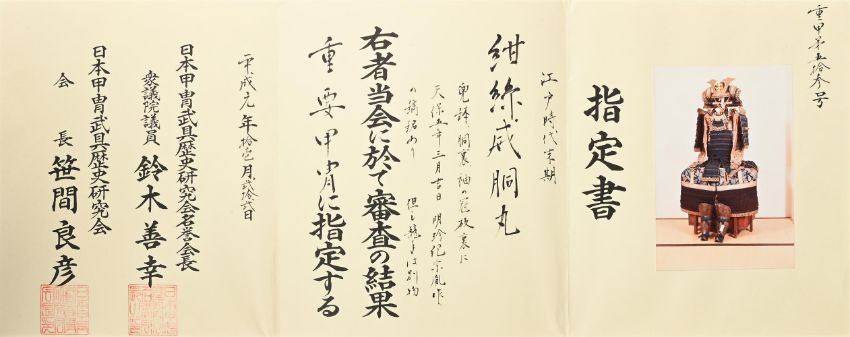 重甲第五拾参号
指定書
江戸時代末期
紺絲威胴丸
兜鉢、胴裏、袖の冠板裏に
天保五年三月吉日 明珍紀宗胤作
の銘あり 但し籠手は別物
右者当会に於て審査の結果
重要甲冑に指定する
平成元年拾壱月弐拾六日
日本甲冑武具歴史研究会名誉会長
衆議院議員 鈴木善幸
日本甲冑武具歴史研究会
会長 笹間良彦